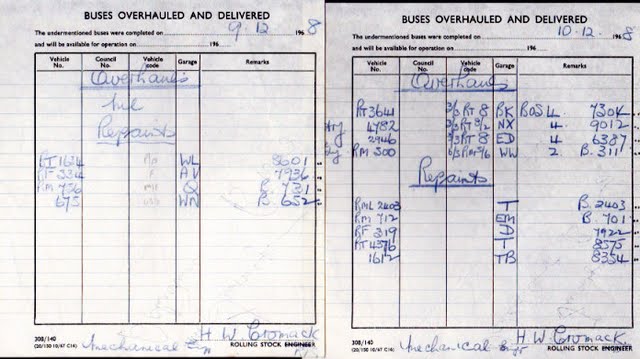 BUSES OVERHAULED AND DELIVERED
The undermentioned buses were completed on 9.12 1968
and will be available for operation on 196
Vehicle No. Council No. Vehicle code Garage Remarks
Overhauls
Nil
Repaints
RT 1624 WL 8601
RF 334 AV 7936
RM 736 Q B.731
675 WN B.652
308/140
(20/150 10/67 C16)
Mechanical
H W Cromack
ROLLING STOCK ENGINEER
BUSES OVERHAULED AND DELIVERED
The undermentioned buses were completed on 10.12. 1968
and will be available for operation on 196
Vehicle No. Council No. Vehicle code Garage Remarks
Overhauls
RT 3641 3/3 RT 8 BK BOS 4 7304
4782 NX 4. 9012
2946 ED 4 6387
RM 300 WW 2 B.311
Repaints
RML 2403 T B.2403
RM 712 EM B.701
RF 319 D 7922
RT 4376 T 8575
1612 TB 8354
308/140
(20/150 10/67 C16)
Mechanical
H W Cromack
ROLLING STOCK ENGINEER